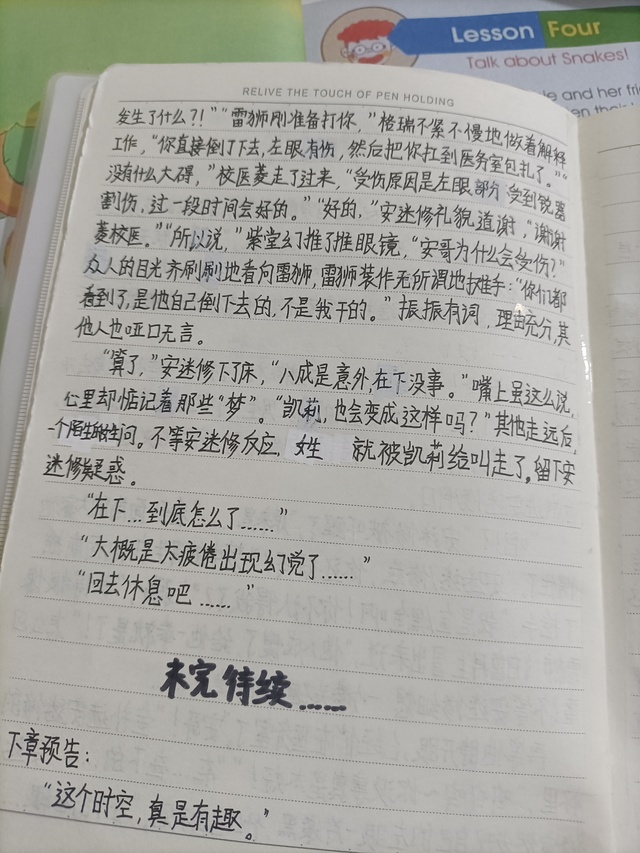 Lesson Four
Talk about Snakes!
le and her frie
RELIVE THE TOUCH OF PEN HOLDING
发生了什么?!”“雷狮刚准备打你,”格瑞不紧不慢地做着解释
工作,“你直接倒了下去,左眼有伤,然后把你扛到医务室包扎了。”“
没有什么大碍,”校医菱走了过来,“受伤原因是左眼部分受到锐器
割伤,过一段时间会好的。”“好的,”安迷修礼貌道谢,“谢谢
菱校医。”“所以说,”紫堂幻推了推眼镜,“安哥为什么会受伤?”
众人的目光齐刷刷地看向雷狮,雷狮装作无所谓地摊手:“你们都
看到了,是他自己倒下去的,不是我干的。”振振有词,理由充分,其
他人也哑口无言。
“算了,”安迷修下了床,“八成是意外,在下没事。”嘴上虽这么说,
心里却惦记着那些“梦”。“凯莉,也会变成这样吗?”其他走远后,
一个陌生的问。不等安迷修反应, 姓 就被凯莉给叫走了。留下安
迷修疑惑。
“在下...到底怎么了......”
“大概是太疲倦出现幻觉了......”
“回去休息吧......”
未完待续......
下章预告:
“这个时空,真是有趣。”